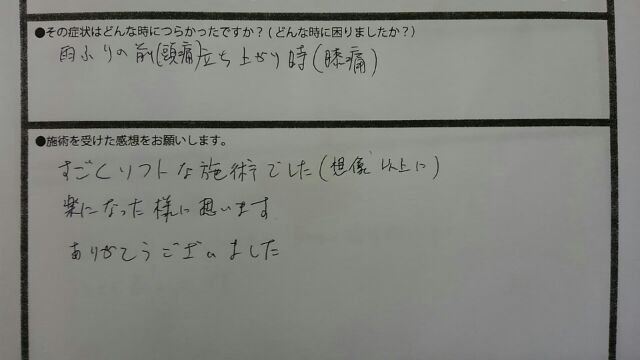 ●その症状はどんな時につらかったですか？(どんな時に困りましたか？)
雨ふりの前(頭痛)立ち上がり時(膝痛)
●施術を受けた感想をお願いします。
すごくソフトな施術でした(想像以上に)
楽になった様に思います
ありがとうございました